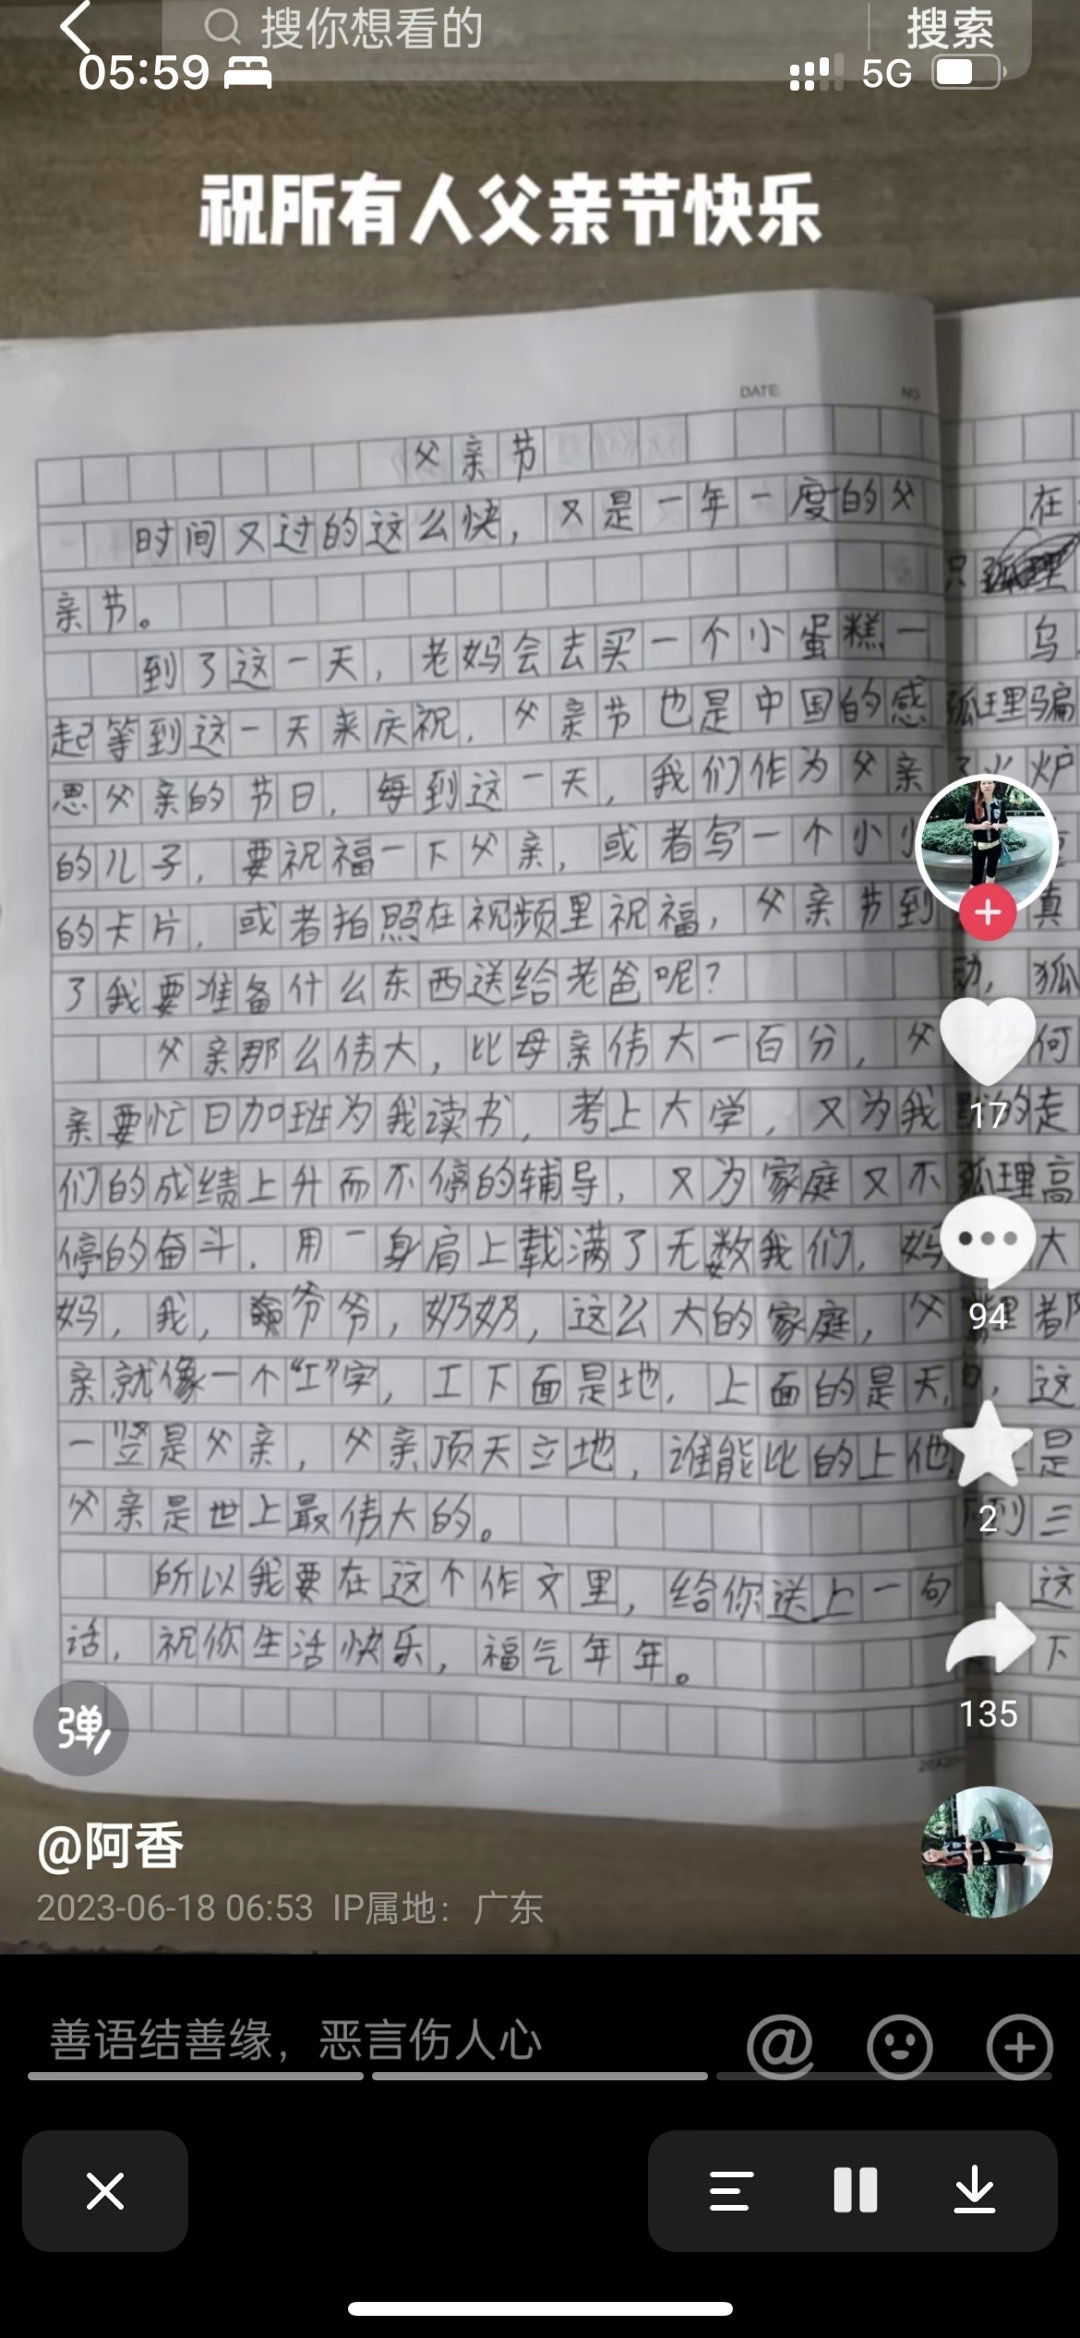 搜你想看的 搜索
05:59 5G
祝所有人父亲节快乐
DATE NO.
父亲节
时间又过的这么快，又是一年一度的父
亲节。
到了这一天，老妈会去买一个小蛋糕一
起等到这一天来庆祝，父亲节也是中国的感
恩父亲的节日，每到这一天，我们作为父亲
的儿子，要祝福一下父亲，或者写一个小小
的卡片，或者拍照在视频里祝福，父亲节到
了我要准备什么东西送给老爸呢？
父亲那么伟大，比母亲伟大一百分，父
亲要忙日加班为我读书，考上大学，又为我
们的成绩上升而不停的辅导，又为家庭又不
停的奋斗，用一身肩上载满了无数我们，妈
妈，我，爷爷，奶奶，这么大的家庭，父
亲就像一个“工”字，工下面是地，上面的是天，
一竖是父亲，父亲顶天立地，谁能比的上他，
父亲是世上最伟大的。
所以我要在这个作文里，给你送上一句
话，祝你生活快乐，福气年年。
在
只
乌
狐理骗
火炉
真
动，狐
何
的走
狐理高
大
者
，这
是
到三
这
下
17
94
2
135
弹
@阿香
2023-06-18 06:53 IP属地：广东
善语结善缘，恶言伤人心